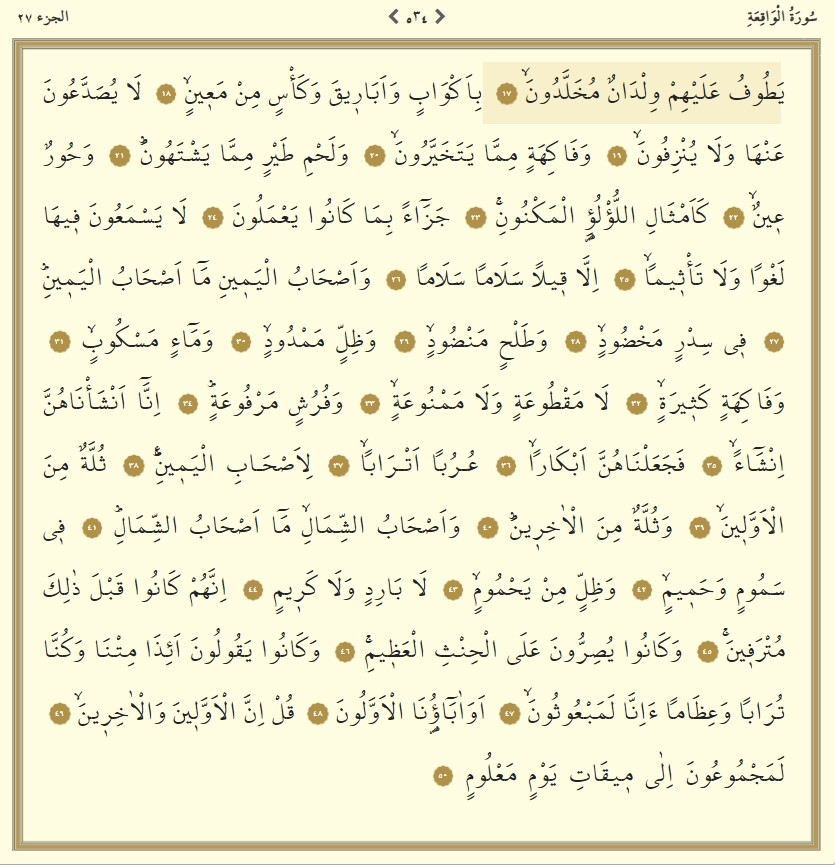 سُورَةُ الْوَاقِعَةِ ٥٣٤ الجزء ٢٧
يَطُوفُ عَلَيْهِمْ وِلْدَانٌ مُخَلَّدُونَۙ ١٧ بِاَكْوَابٍ وَاَبَارِيقَ وَكَأْسٍ مِنْ مَعٖينٍۙ ١٨ لَا يُصَدَّعُونَ
عَنْهَا وَلَا يُنْزِفُونَۙ ١٩ وَفَاكِهَةٍ مِمَّا يَتَخَيَّرُونَۙ ٢٠ وَلَحْمِ طَيْرٍ مِمَّا يَشْتَهُونَؕ ٢١ وَحُورٌ
عٖينٌۙ ٢٢ كَاَمْثَالِ اللُّؤْلُؤِ۬ الْمَكْنُونِۚ ٢٣ جَزَٓاءً بِمَا كَانُوا يَعْمَلُونَ ٢٤ لَا يَسْمَعُونَ فٖيهَا
لَغْوًا وَلَا تَأْثٖيمًاۙ ٢٥ اِلَّا قٖيلًا سَلَامًا سَلَامًا ٢٦ وَاَصْحَابُ الْيَمٖينِ مَٓا اَصْحَابُ الْيَمٖينِؕ
٢٧ فٖى سِدْرٍ مَخْضُودٍۙ ٢٨ وَطَلْحٍ مَنْضُودٍۙ ٢٩ وَظِلٍّ مَمْدُودٍۙ ٣٠ وَمَٓاءٍ مَسْكُوبٍۙ ٣١
وَفَاكِهَةٍ كَثٖيرَةٍۙ ٣٢ لَا مَقْطُوعَةٍ وَلَا مَمْنُوعَةٍۙ ٣٣ وَفُرُشٍ مَرْفُوعَةٍؕ ٣٤ اِنَّٓا اَنْشَأْنَاهُنَّ
اِنْشَٓاءًۙ ٣٥ فَجَعَلْنَاهُنَّ اَبْكَارًاۙ ٣٦ عُرُبًا اَتْرَابًاۙ ٣٧ لِاَصْحَابِ الْيَمٖينِؕ۟ ٣٨ ثُلَّةٌ مِنَ
الْاَوَّلٖينَۙ ٣٩ وَثُلَّةٌ مِنَ الْاٰخِرٖينَؕ ٤٠ وَاَصْحَابُ الشِّمَالِۙ مَٓا اَصْحَابُ الشِّمَالِؕ ٤١ فٖى
سَمُومٍ وَحَمٖيمٍۙ ٤٢ وَظِلٍّ مِنْ يَحْمُومٍۙ ٤٣ لَا بَارِدٍ وَلَا كَرٖيمٍ ٤٤ اِنَّهُمْ كَانُوا قَبْلَ ذٰلِكَ
مُتْرَفٖينَۚ ٤٥ وَكَانُوا يُصِرُّونَ عَلَى الْحِنْثِ الْعَظٖيمِۚ ٤٦ وَكَانُوا يَقُولُونَ اَئِذَا مِتْنَا وَكُنَّا
تُرَابًا وَعِظَامًا ءَاِنَّا لَمَبْعُوثُونَۙ ٤٧ اَوَاٰبَٓاؤُ۬نَا الْاَوَّلُونَ ٤٨ قُلْ اِنَّ الْاَوَّلٖينَ وَالْاٰخِرٖينَۙ ٤٩
لَمَجْمُوعُونَ اِلٰى مٖيقَاتِ يَوْمٍ مَعْلُومٍ ٥٠